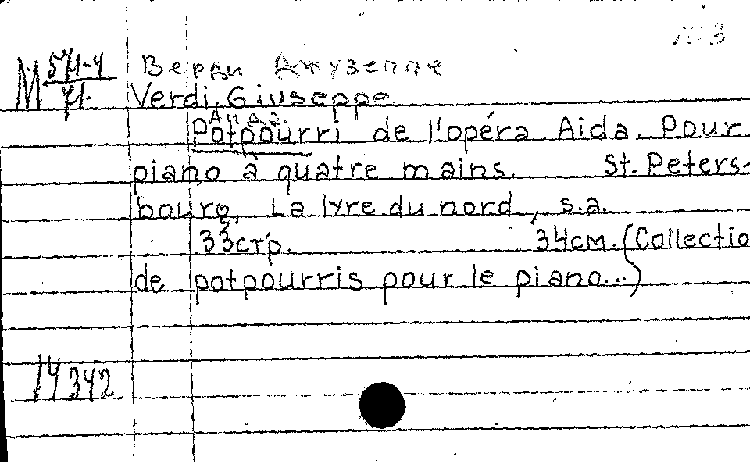 №3
М 571-4 Верди Джузеппе
71. Verdi, Giuseppe
Аида.
Potpourri de l'opéra Aida. Pour
piano à quatre mains. St. Peters-
bourg, La lyre du nord, s.a.
33стр. 34см. (Collectio
de potpourris pour le piano...)
14342